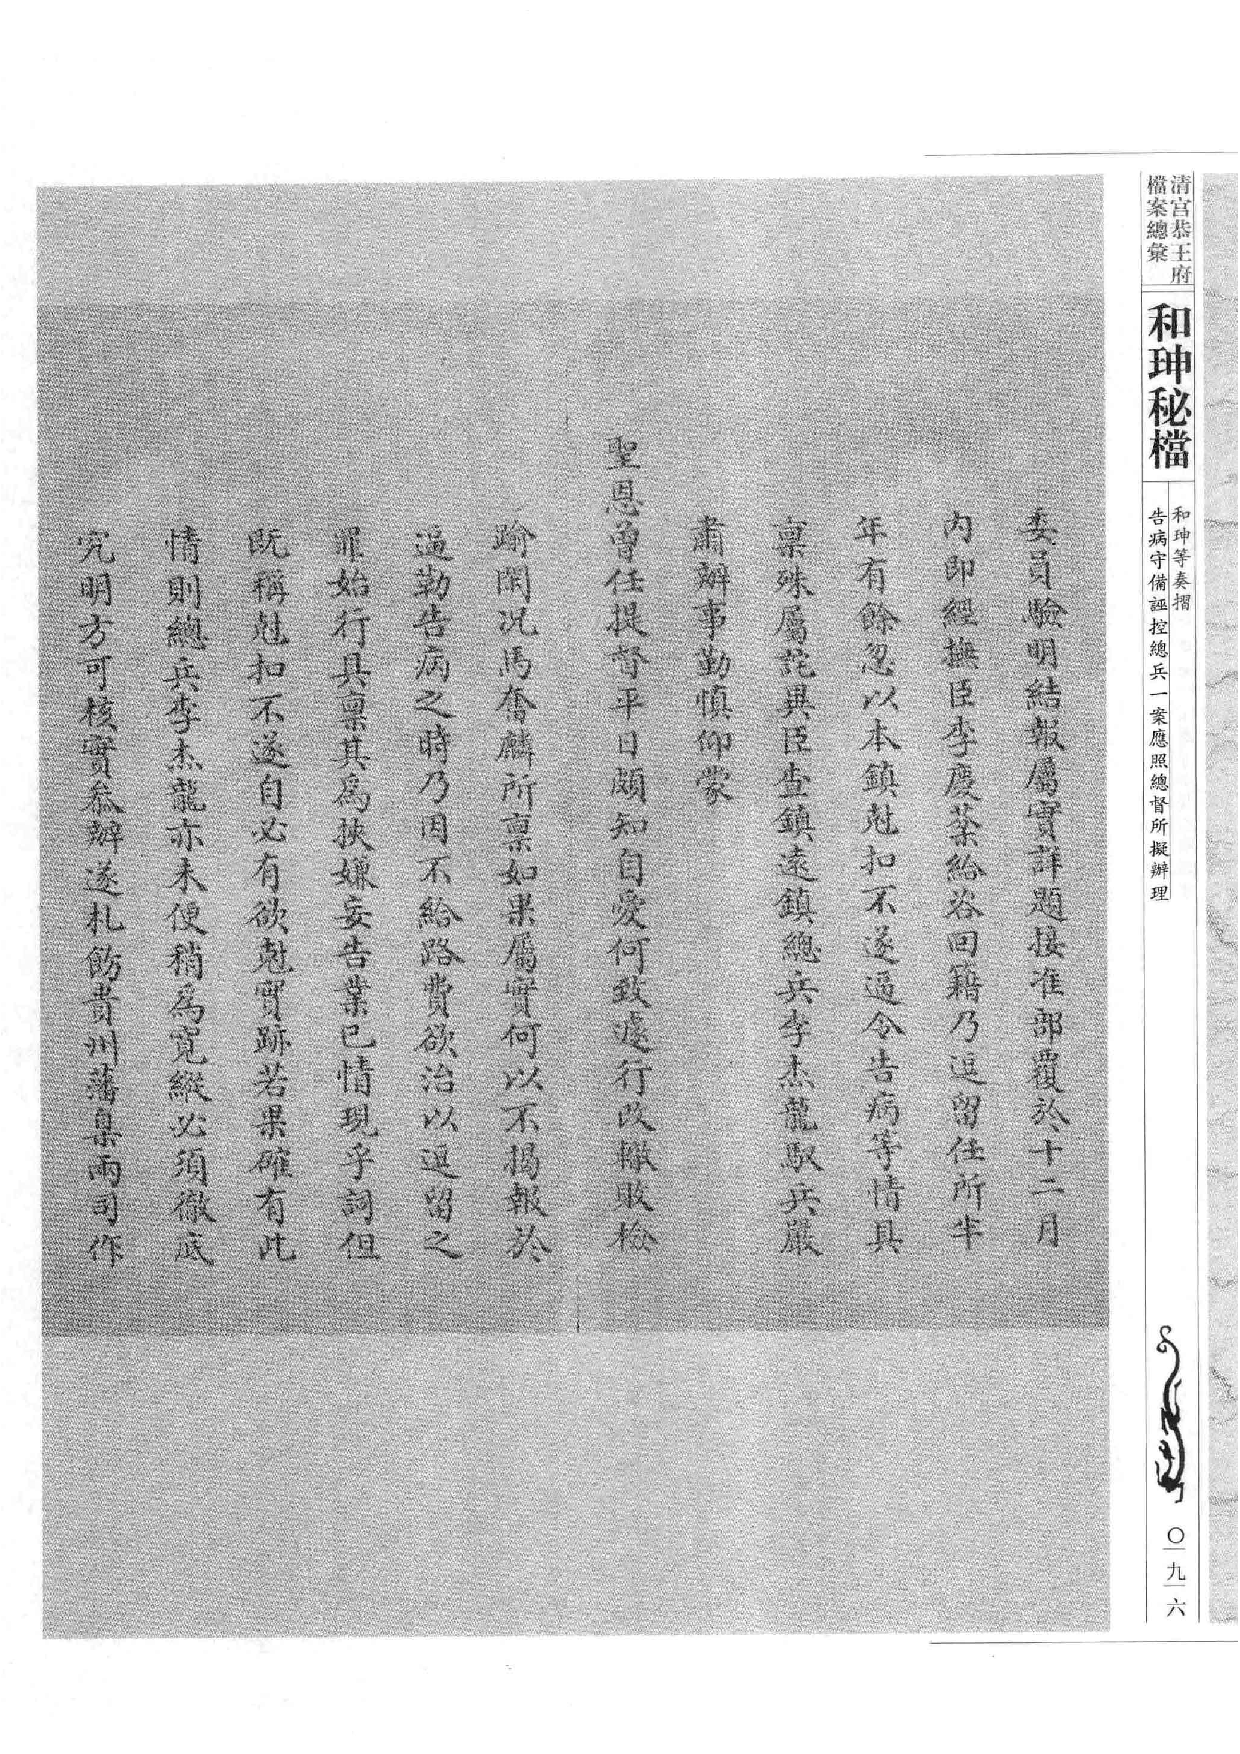 清宫恭王府
檔案總彙
和珅秘檔
和珅等奏摺
告病守備誣控總兵一案應照總督所擬辦理
委員驗明結報屬實詳題接准部覆於十二月
内即經撫臣李慶棻給咨回籍乃逗留任所半
年有餘忽以本鎮尅扣不遂逼令告病等情具
禀殊屬詫異臣查鎮遠鎮總兵李杰龍馭兵嚴
肅辦事勤慎仰蒙
聖恩曾任提督平日頗知自愛何致遽行改轍敗檢
踰閑况馬奮麟所禀如果屬實何以不揭報於
逼勒告病之時乃因不給路費欲治以逗留之
罪始行具禀其爲挾嫌妄告業已情現乎詞但
既稱尅扣不遂自必有欲尅實跡若果確有此
情則總兵李杰龍亦未便稍爲寬縱必須徹底
究明方可核實叅辦遂札飭貴州藩臬兩司作
〇一九一六